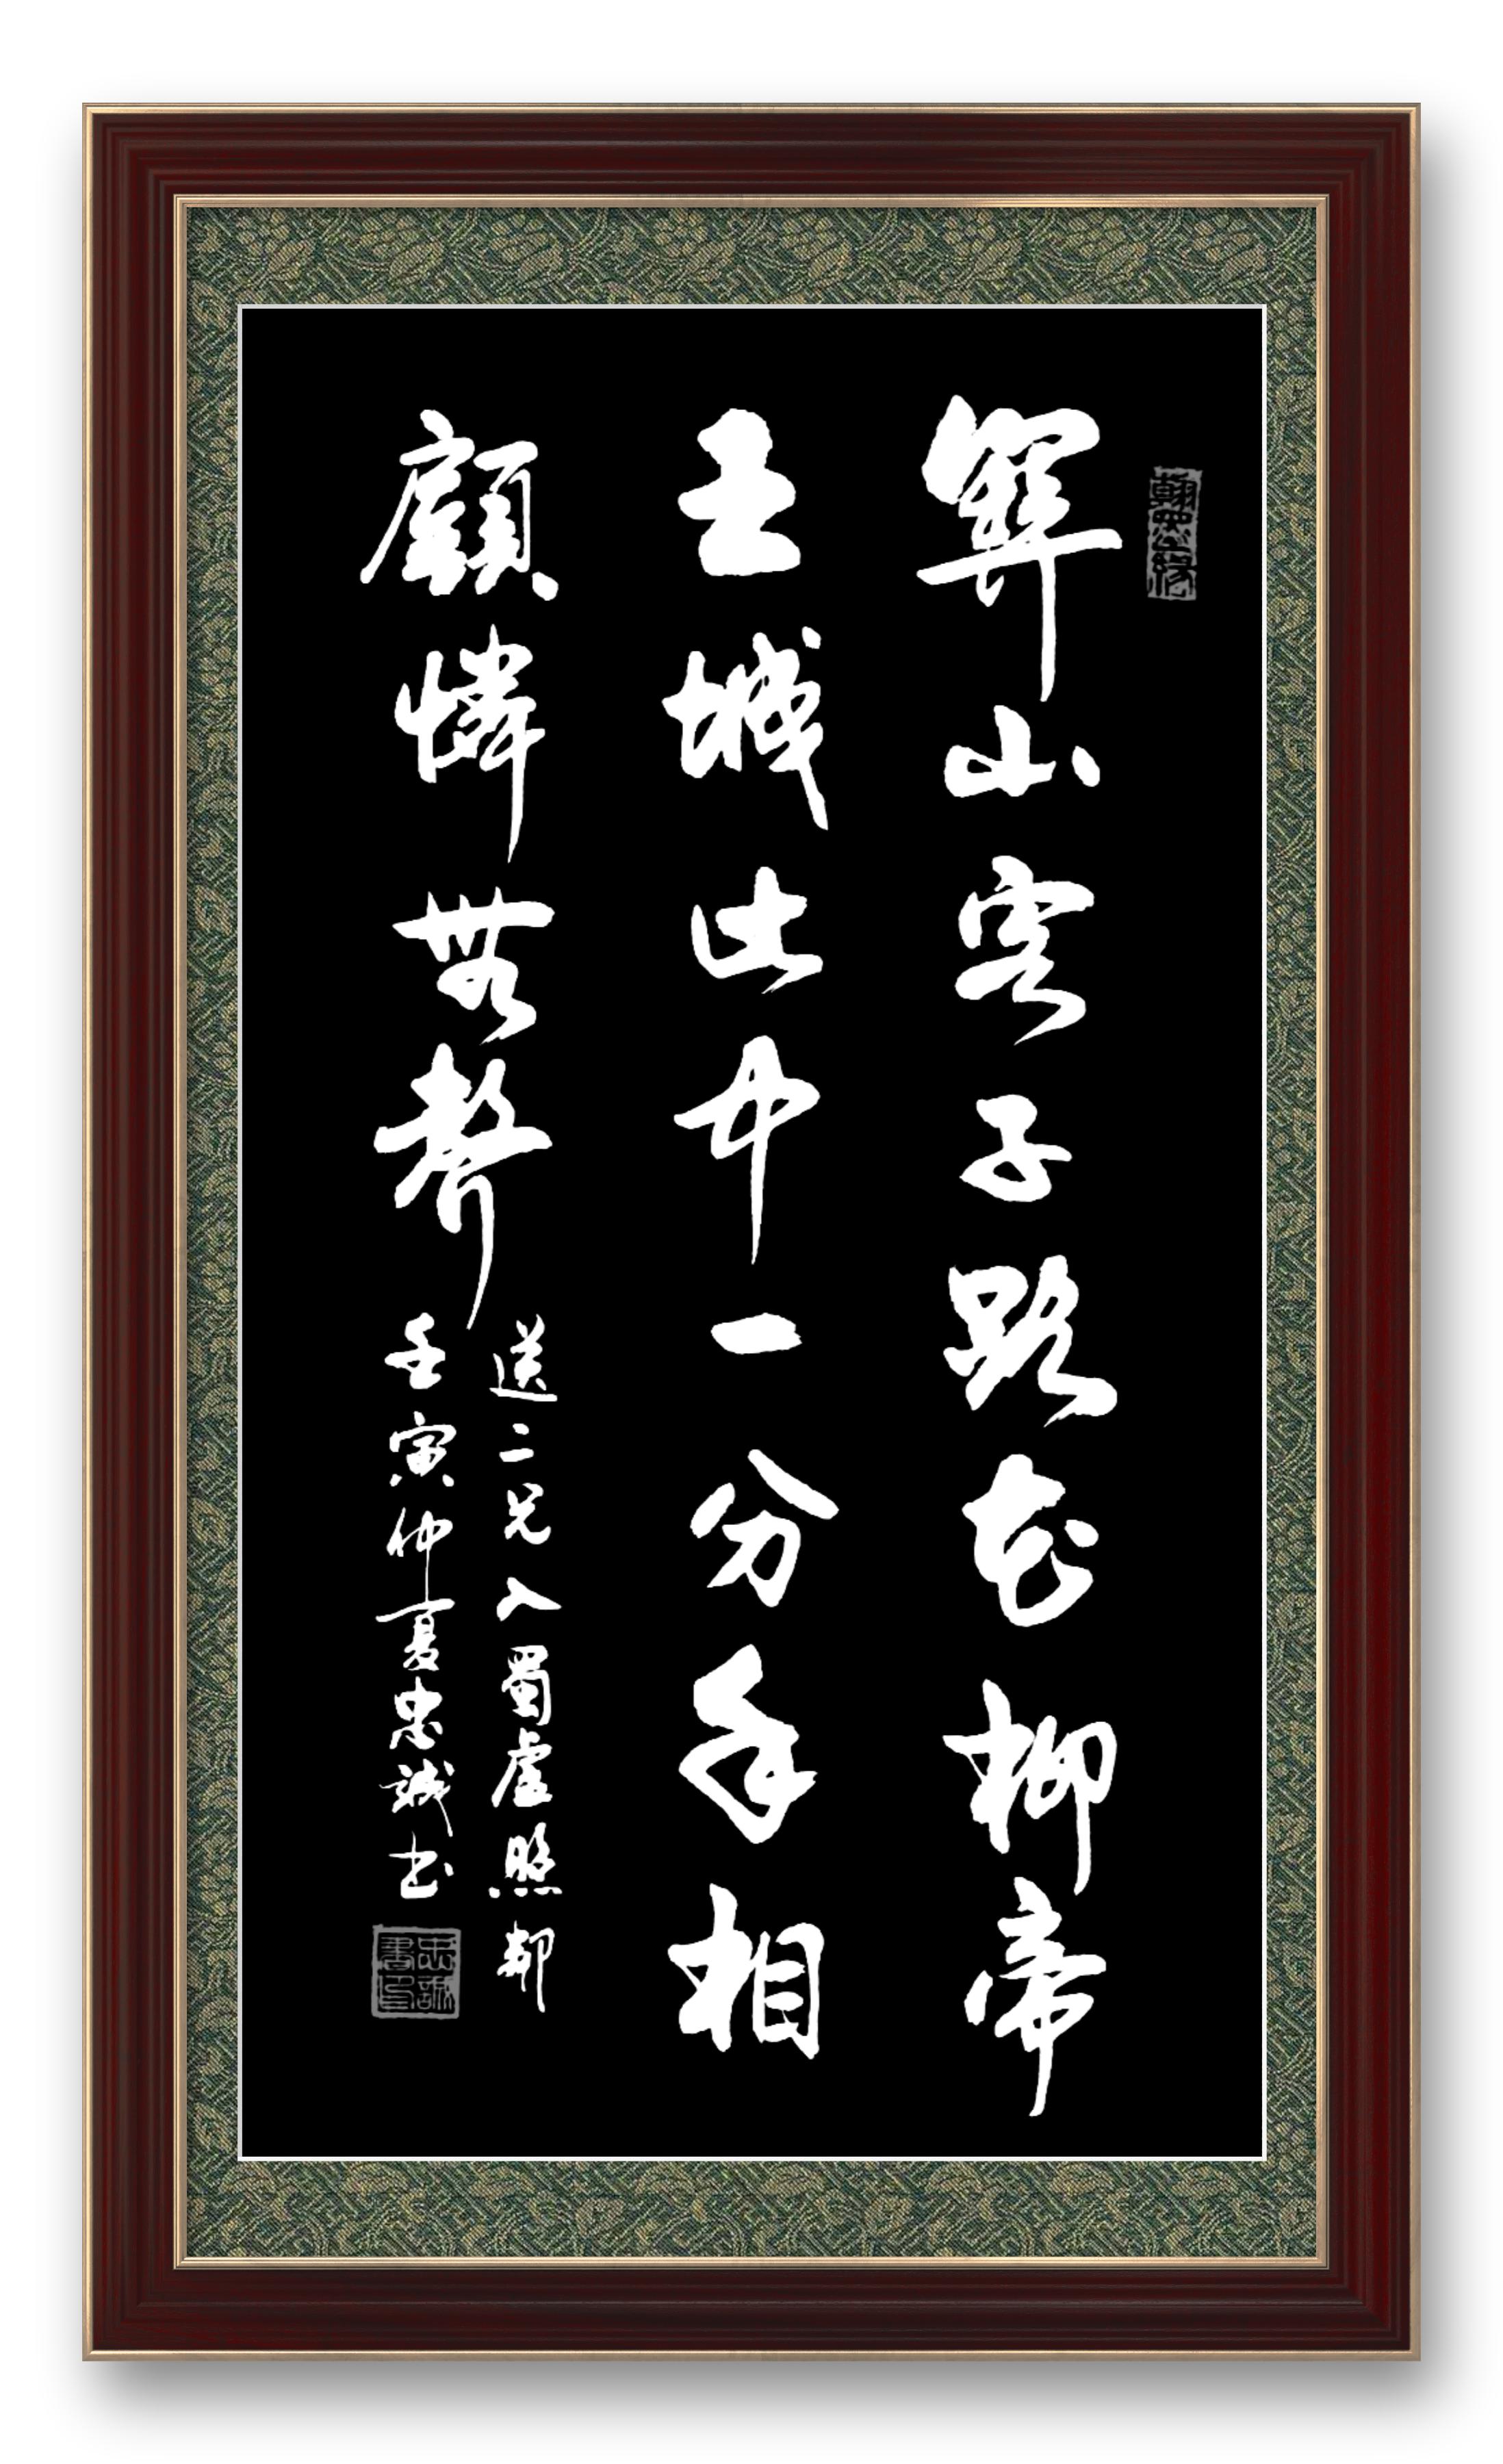 翰墨緣
關山客子路花柳帝
王城此中一分手相
顧憐無聲
送二兄入蜀盧照鄰
壬寅仲夏忠誠书
忠誠書印